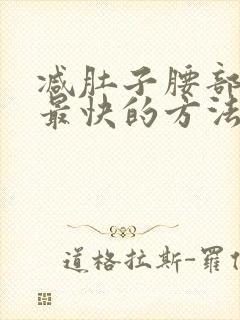 减肚子腰部
最快的方法
道格拉斯-罗